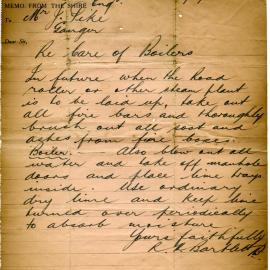 MEMO. FROM THE SHIRE Eng.
To Mr J. Pike
Ganger
Dear Sir,
Re care of Boilers
In future when the Road
roller or other steam plant
is to be laid up, take out
all fire bars and thoroughly
brush out all soot and
ashes from fire boxes.
Boiler. - Also blow out all
water and take off manhole
doors and place lime trays
inside. Use ordinary
dry lime and keep lime
turned over periodically
to absorb moisture
Yours faithfully